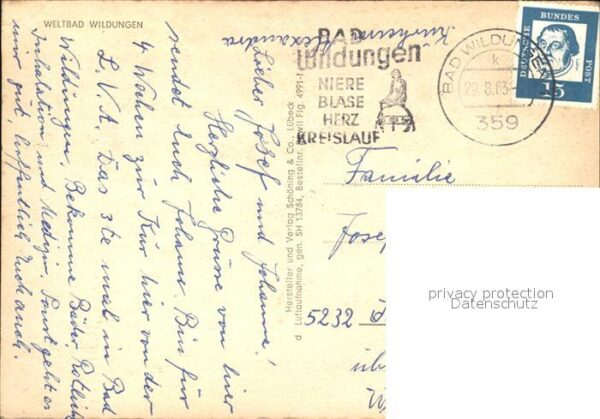 WELTBAD WILDUNGEN
Lieber Josef und Johanna!
Herzliche Grüsse von hier
sendet Euch Johann. Bin für
4 Wochen zur Kur hier von der
L.V.A. Das 3te mal in Bad
Wildungen, Bekomme Bäder, Rotlicht
Inhalation und Medizin. Sonst geht es
mir gut, hoffentlich Euch auch.
Kurheim
Alexandra
Hersteller und Verlag Schöning & Co., Lübeck
Luftaufnahme, gen. SH 13784, Bestellnr. Wil Flg. 4991-f
BAD
Wildungen
NIERE
BLASE
HERZ
KREISLAUF
BAD WILDUNGEN
k
29.8.63
359
DEUTSCHE
BUNDES
POST
15
Familie
Josef
5232
üb
W
privacy protection
Datenschutz